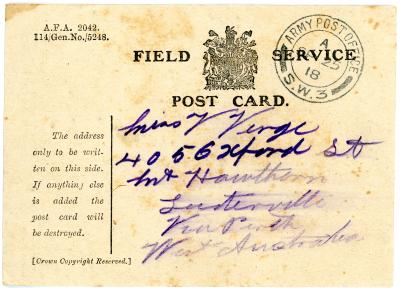 A.F.A. 2042.
114/Gen.No./5248.
FIELD SERVICE
POST CARD.
ARMY POST OFFICE
A
25
18
S.W.3
The address
only to be writ-
ten on this side.
If anything else
is added the
post card will
be destroyed.
[Crown Copyright Reserved.]
Miss V Verge
405 Oxford St
Mt Hawthorn
Leederville
Via Perth
West Australia